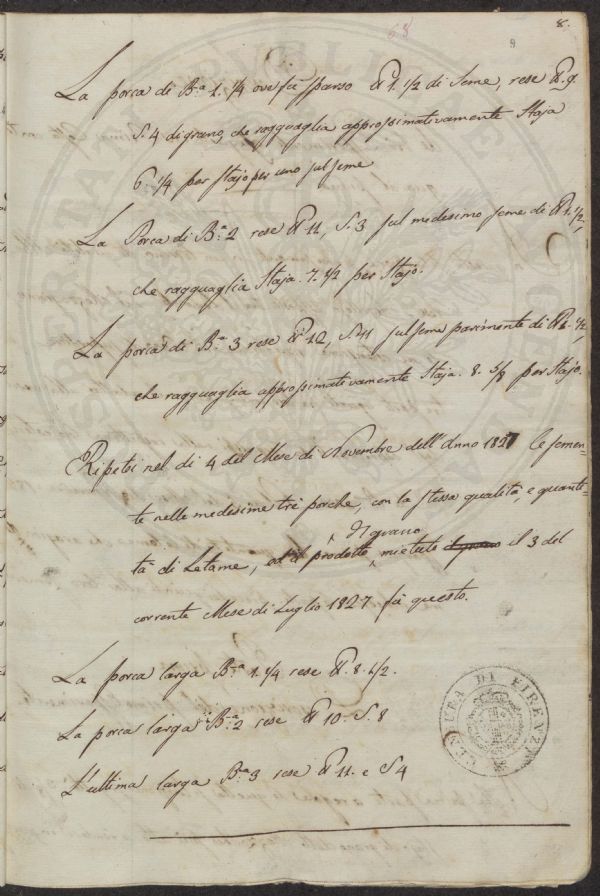 68
8.
9
La porca di B.a 1. 1/4 ove fù sparso ℔ 1. 1/2 di Seme, rese ℔. 9
S. 4 di grano, che ragguaglia approssimativamente Staja
6 1/4 per Stajo per uno sul seme
La Porca di B.a 2 rese ℔ 11, S. 3 sul medesimo seme di ℔ 1. 1/2,
che ragguaglia Staja. 7. 1/2 per Stajo.
La porca di B.a 3 rese ℔ 12, S. 11 sul seme parimente di ℔ 1. 1/2,
che ragguaglia approssimativamente Staja. 8. 5/8 per Stajo.
Ripetei nel di 4 del Mese di Novembre dell'Anno 1827 le semen-
te nelle medesime tre porche, con la stessa qualità, e quanti-
di grano
tà di Letame, ed il prodotto, mietuto di grano il 3 del
corrente Mese di Luglio 1827 fù questo.
La porca larga B.a 1. 1/4 rese ℔. 8. 1/2.
La porca larga B.a 2 rese ℔ 10. S. 8
L'ultima larga B.a 3 rese ℔ 11. e S. 4
CENSURA DI FIRENZE